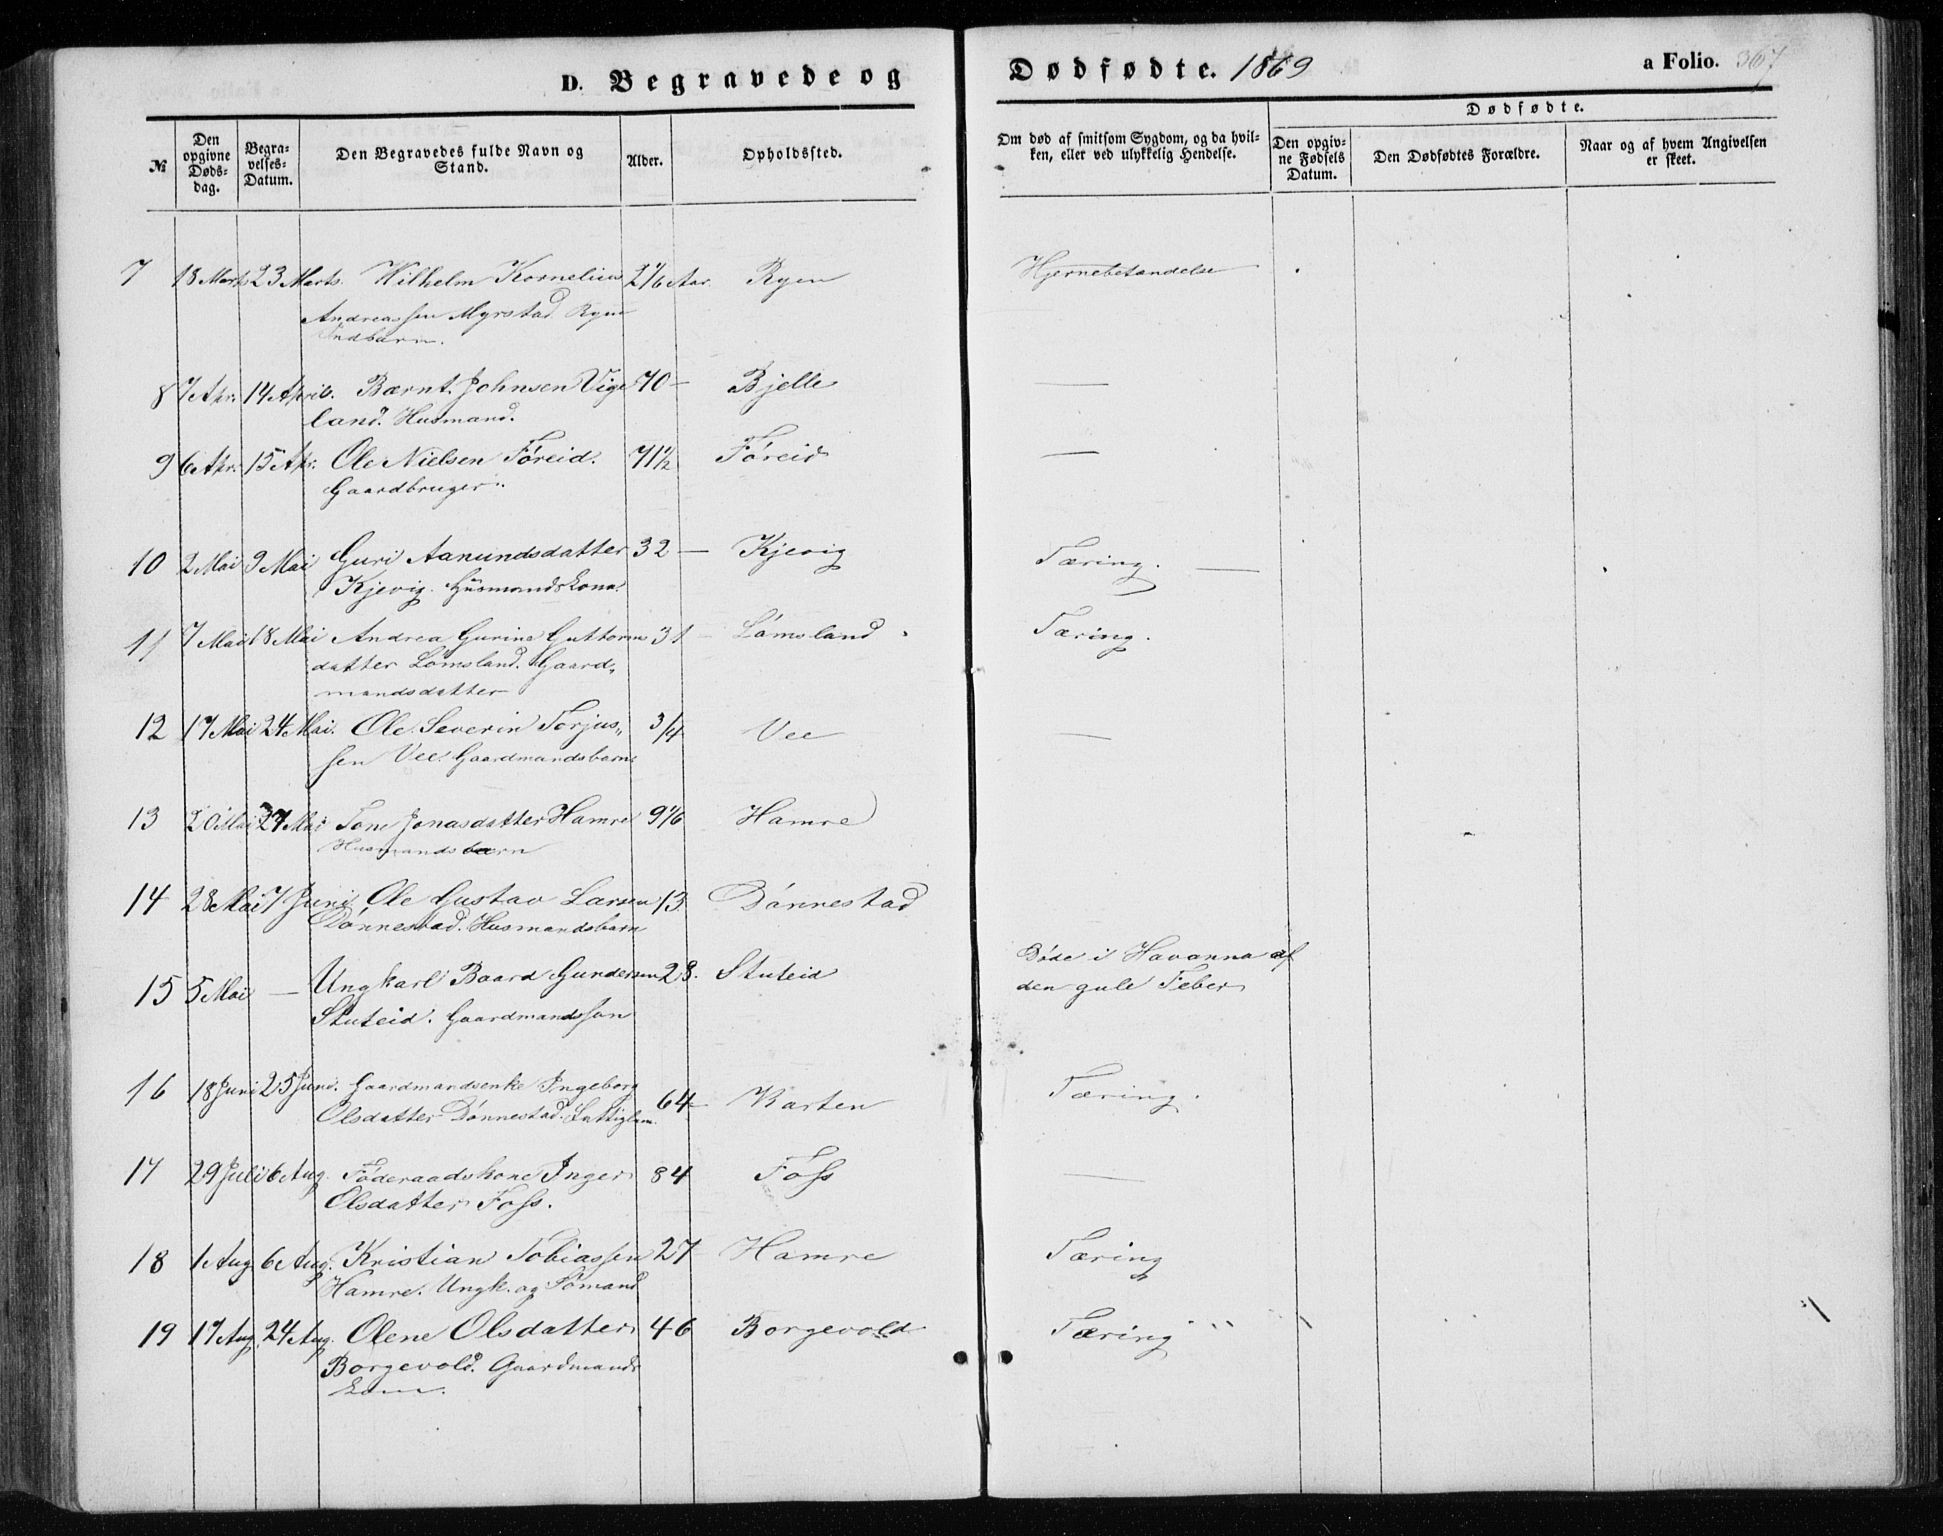 D. Begravede og
Dødfødte. 1869
a Folio. 367
Dødfødte.
№
Den opgivne Døds-dag.
Begra-velses-Datum.
Den Begravedes fulde Navn og Stand.
Alder.
Opholdssted.
Om død af smitsom Sygdom, og da hvil-ken, eller ved ulykkelig Hendelse.
Den opgiv-ne Fødsels Datum.
Den Dødfødtes Forældre.
Naar og af hvem Angivelsen er skeet.
7 18 Marts 23 Marts. Wilhelm Kornelius 2 1/6 Aar. Ryen Hjernebetændelse
Andreassen Myrstad Ryen
Indbarn.
8 7 Apr. 14 April. Bærnt. Johnsen Vige 70 — Bjelle —
land. Husmand.
9 6 Apr. 15 Apr. Ole Nielsen Föreid. 71 1/2 Föreid —
Gaardbruger.
10 2 Mai 9 Mai Guri Aanundsdatter 32 — Kjevig Tæring. —
Kjevig. Husmandskona.
11 7 Mai 18 Mai Andrea Gurine Guttorms 31 — Lömsland Tæring.
datter Lömsland. Gaard„
mandsdatter
12 17 Mai 24 Mai. Ole Severin Torjus„ 3/4 Vee —
sen Vee. Gaardmandsbarn.
13 20 Mai 27 Mai Tone Jonasdatter Hamre 9 1/6 Hamre
Husmandsbarn
14 28 Mai 7 Juni Ole Gustav Larsen 13 Dönnestad
Dönnestad. Husmandsbarn
15 5 Mai — Ungkarl Baard Gundersen 28. Stuteid Döde i Havanna af
den gule Feber
Stuteid. Gaardmandssön
16 18 Juni 25 Juni. Gaardmandsenke Ingeborg
Olsdatter Dönnestad. 64 — Karten Tæring.
17 29 Juli 6 Aug. Föderaadskone Inger 84 Foss —
Olsdatter Foss.
18 1 Aug 6 Aug. Kristian Tobiassen 27 Hamre Tæring
Hamre. Ungk. og Sömand
19 17 Aug. 24 Aug. Olene Olsdatter 46 Borgevold Tæring
Borgevold. Gaardmands
kone.